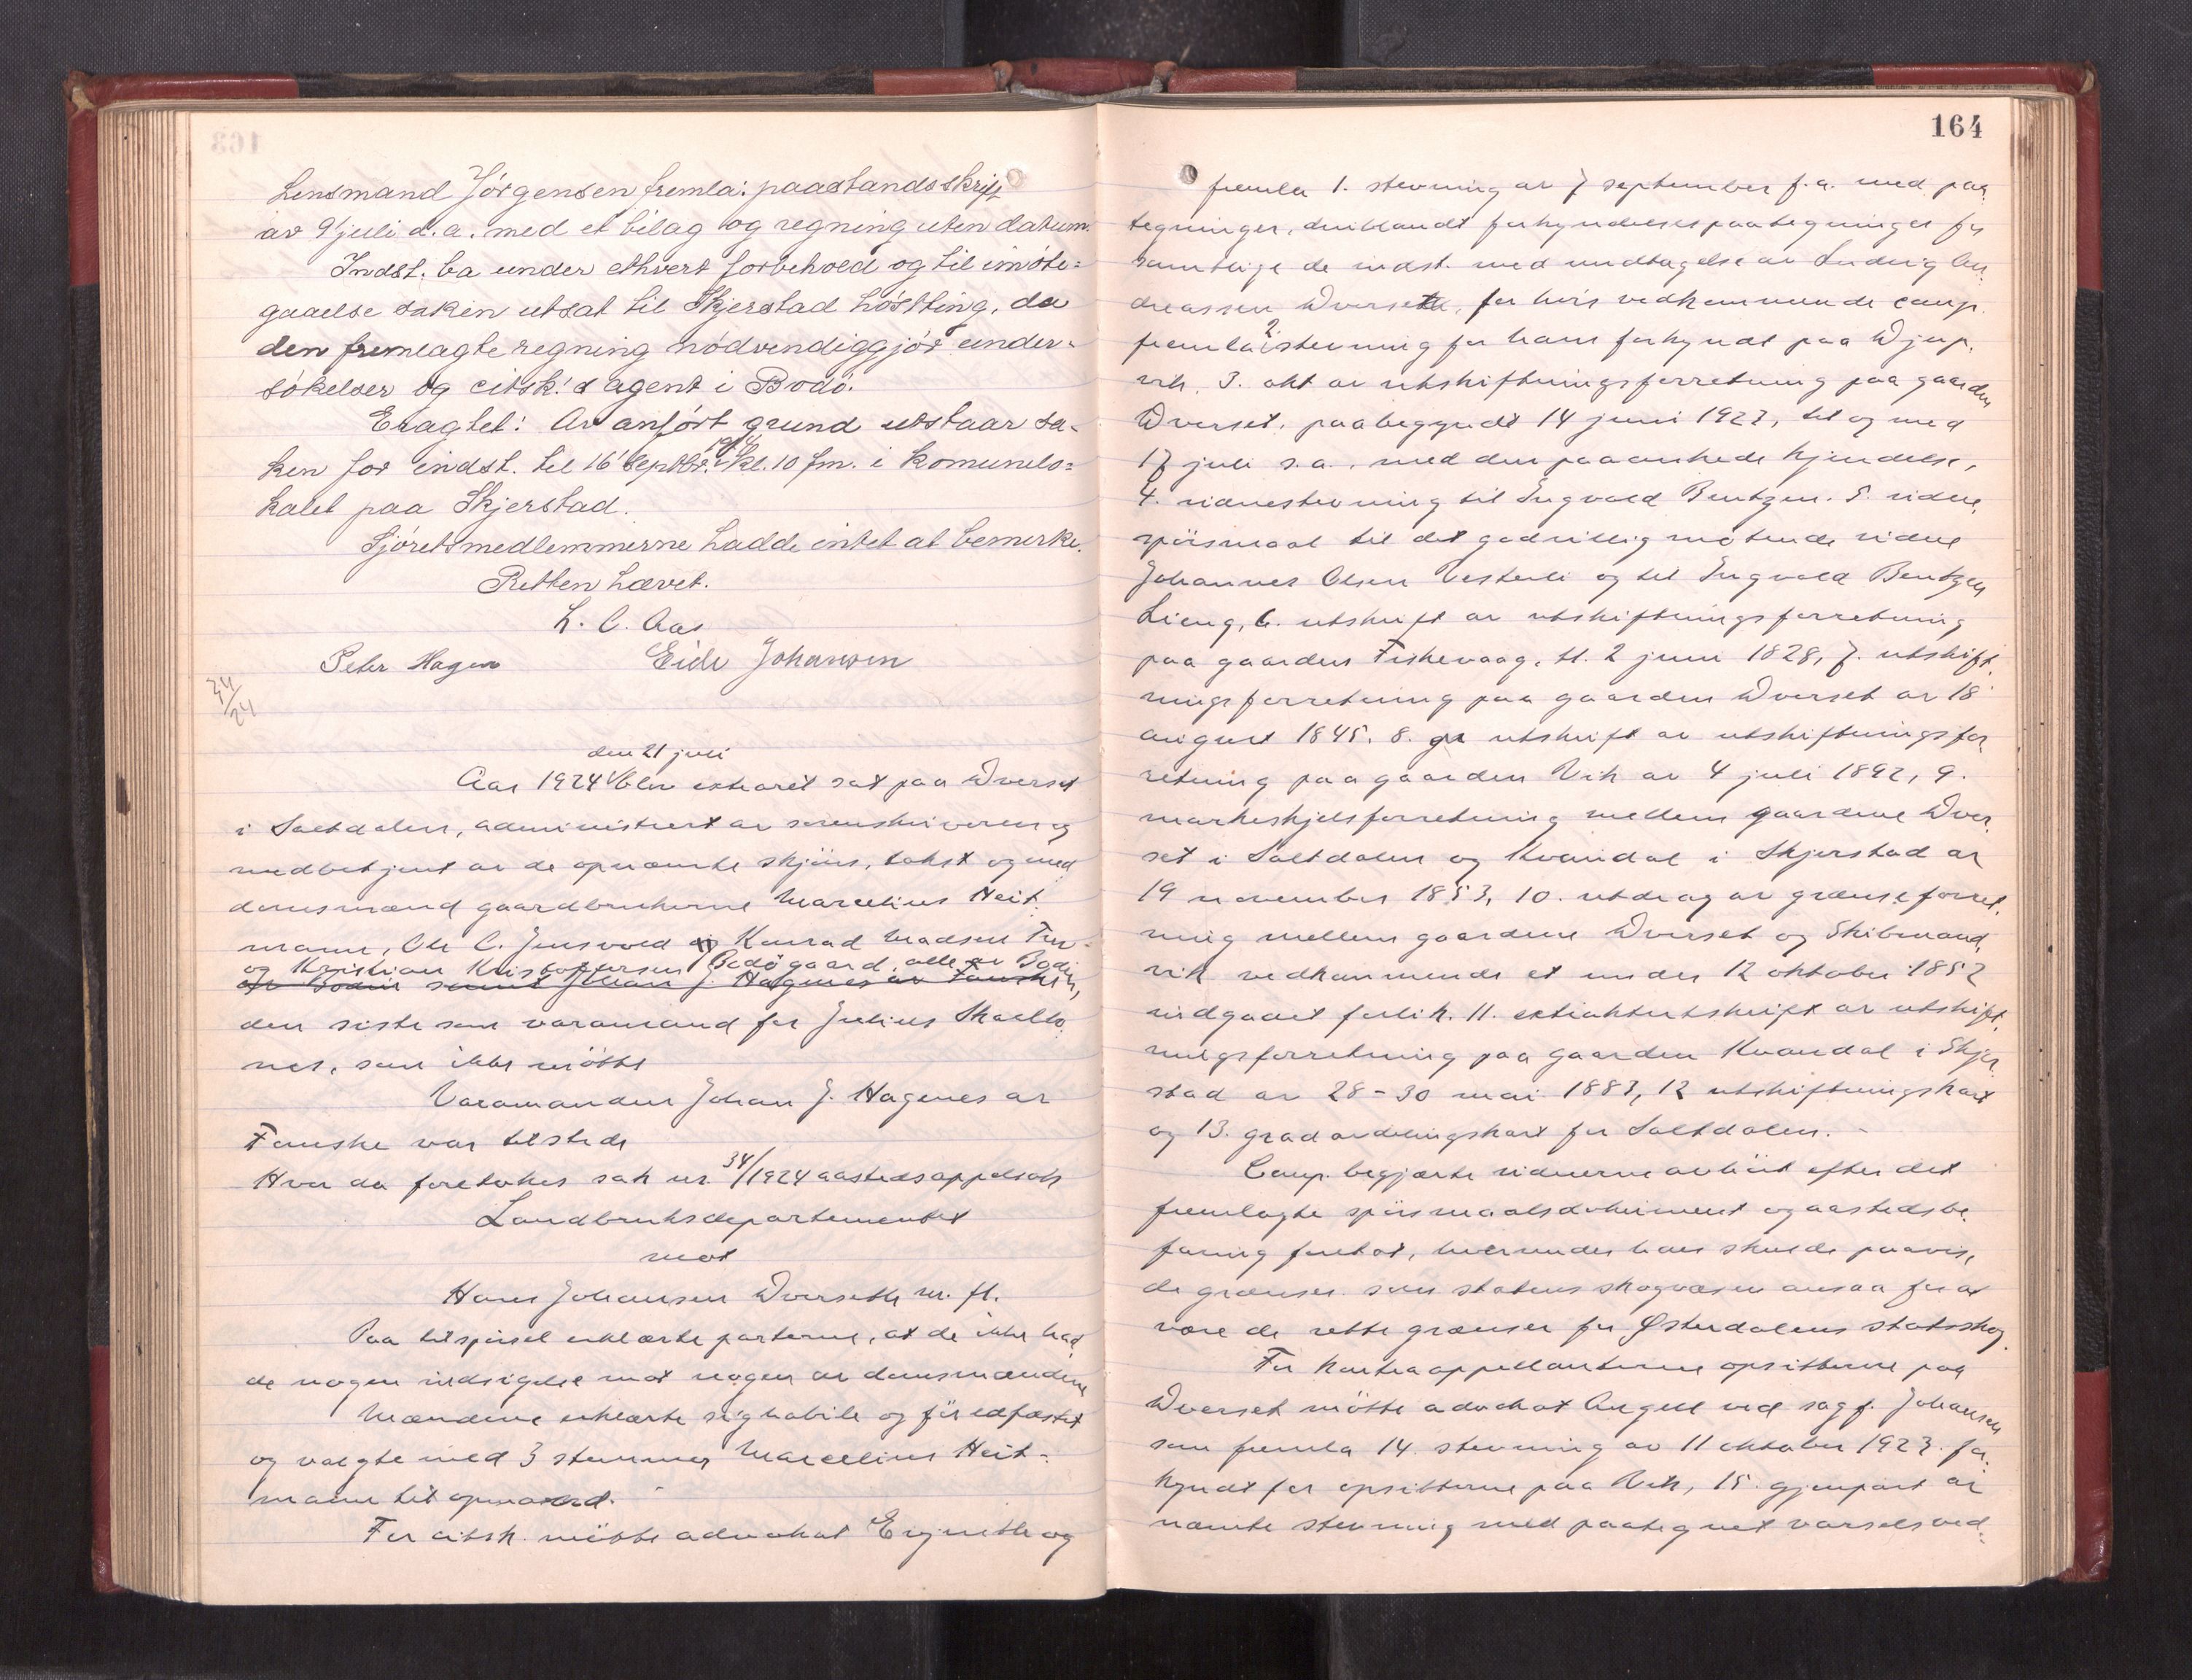 Lensmand Jörgensen fremla: paastandsskrift
av 9 juli d.a. med et bilag og regning uten datum.
Indst. ba under ethvert forbehold og til imöte-
gaaelse saken utsat til Skjerstad hösting, da
den fremlagte regning nödvendiggjör under-
sökelser og citsk.'s agent i Bodö.
Eragtet: Av anfört grund utstaar sa-
ken for indst. til 16 septbr. 1924 kl. 10 fm. i komunelo-
kalet paa Skjerstad.
Sjöretsmedlemmerne hadde intet at bemerke.
Retten hævet.
L. C. Aas
Peter Hagen Eide Johansen
34/24
den 21 juli
Aar 1924 blev extraret sat paa Dverset
i Saltdalen, administrert av sorenskriveren og
medbetjent av de opnævnte skjöns, takst og med
domsmænd gaardbrukerne Marcelius Heit-
mann, Ole C. Jensvold og Konrad Madsen
og Kristian Kristoffersen Bodögaard, alle av Bodin
av Bodin samt Johan J. Hagenes av Fauske,
den siste som varamand for Julius
nes, som ikke mötte
Varamanden Johan J. Hagenes av
Fauske var tilstede
Hvor da foretokes sak nr. 34/1924 aastedsappelsak
Landbruksdepartementet
mot
Hans Johansen Dverseth m. fl.
Paa tilspörsel erklærte parterne, at de ikke had-
de nogen indsigelse mot nogen av domsmændene
Mændene erklærte sig habile og för edfæstet
og valgte med 3 stemmer Marcelius Heit-
mann til opmand.
For citsk. mötte advokat og
164
fremla 1. stevning av 7 september f.a. med paa-
tegninger, deriblandt forkyndelsespaategninger for
samtlige de indst. med undtagelse av Ludvig An-
dreassen Dverseth, for hvis vedkommende comp.
fremla 2. stevning for ham forkyndt paa Djup-
vik, 3. akt av utskiftningsforretning paa gaarden
Dverset, paabegyndt 14 juni 1923, til og med
17 juli s.a., med den paaankede kjendelse,
4. vidnestevning til Ingvald Bentzen. 5. vidne-
spörsmaal til det godvillig mötende vidne
Johannes Olsen Vesterli og til Ingvald Bentzen
Lieng, 6. utskrift av utskiftningsforretning
paa gaarden Fiskevaag, d. 2 juni 1828, 7. utskift-
ningsforretning paa gaarden Dverset av 18
august 1845. 8. utskrift av utskiftningsfor-
retning paa gaarden Vik av 4 juli 1892, 9.
markeskjelsforretning mellem gaardene Dver-
set i Saltdalen og Kvandal i Skjerstad av
19 november 1853, 10. utdrag av grænseforret-
ning mellem gaardene Dverset og Skibmand-
vik vedkommende et under 12 oktober 1852
indgaaet forlik. 11. extraktutskrift av utskift-
ningsforretning paa gaarden Kvandal i Skjer-
stad av 28-30 mai 1883, 12 utskiftningskart
og 13. gradavdelingskart for Saltdalen. -
Comp. begjærte vidnerne avhört efter det
fremlagte spörsmaalsdokument og aastedsbe-
faring foretat, hvorunder han skulde paavise
de grænser som statens skogvæsen ansaa for at
være de rette grænser for Østerdalens statsskog
For kontraappellanterne opsitterne paa
Dverset mötte advokat Angell ved sagf. Johansen
som fremla 14. stevning av 11 oktober 1923 for-
kyndt for opsitterne paa Vik, 15. gjenpart av
nævnte stevning med paategnet varselsved-